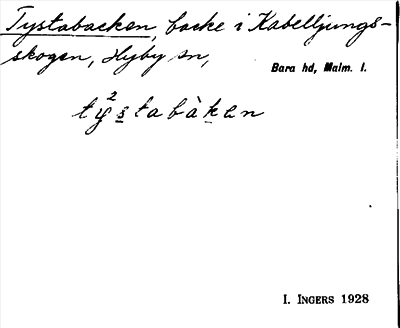 Tystabacken, backe i Kabelljungs-
skogen, Hyby sn,
Bara hd, Malm. l.
ty²stabàkan
I. INGERS 1928